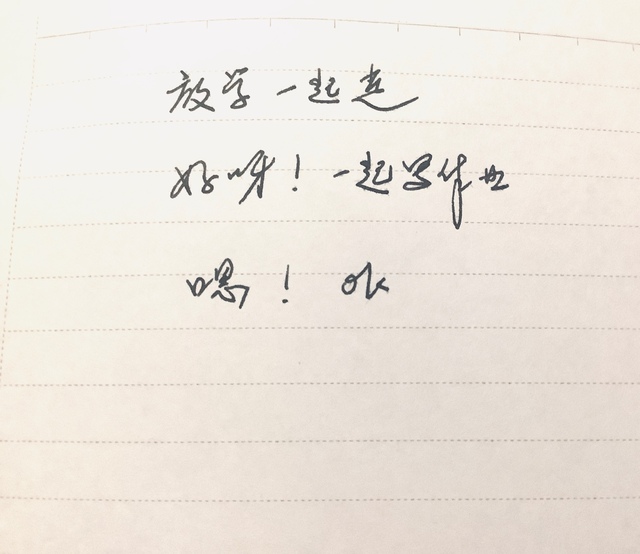 放学一起走
好呀！一起写作业
嗯！ ok